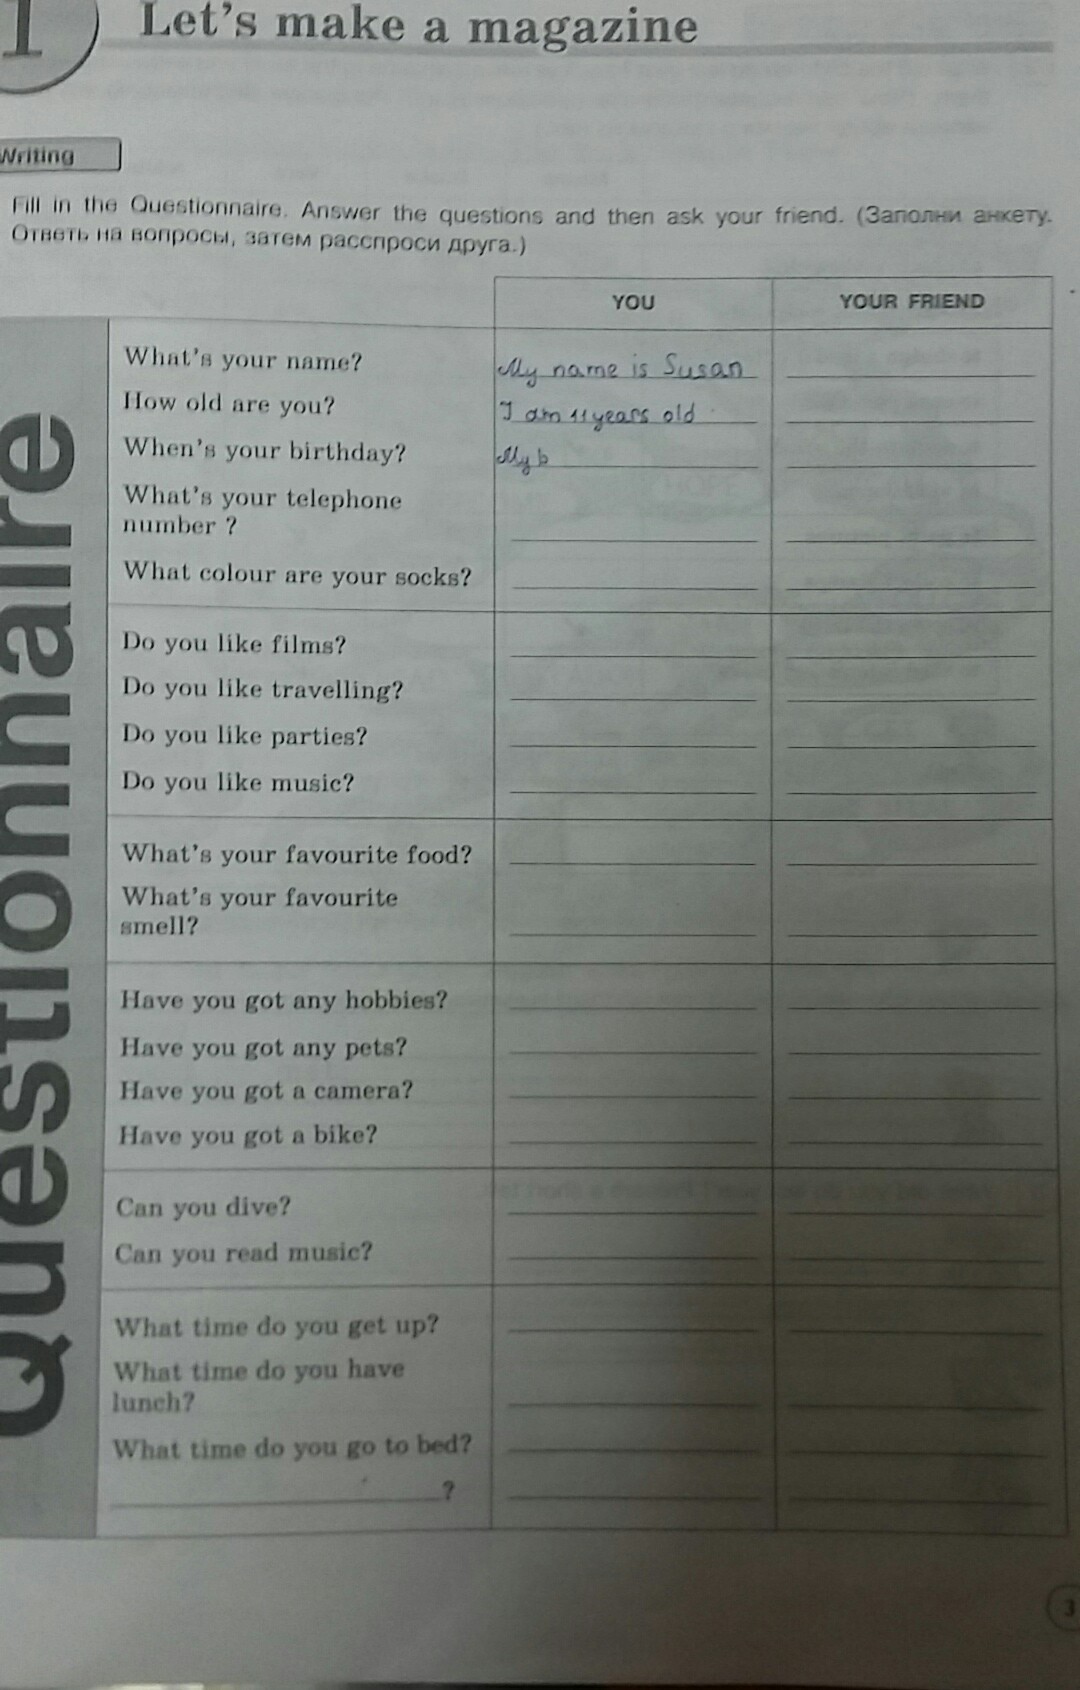 1 Let's make a magazine
Writing
Fill in the Questionnaire. Answer the questions and then ask your friend. (Заполни анкету.
Ответь на вопросы, затем расспроси друга.)
YOU YOUR FRIEND
Questionnaire
What's your name? My name is Susan
How old are you? I am 11 years old
When's your birthday? My b
What's your telephone
number ?
What colour are your socks?
Do you like films?
Do you like travelling?
Do you like parties?
Do you like music?
What's your favourite food?
What's your favourite
smell?
Have you got any hobbies?
Have you got any pets?
Have you got a camera?
Have you got a bike?
Can you dive?
Can you read music?
What time do you get up?
What time do you have
lunch?
What time do you go to bed?
?
3